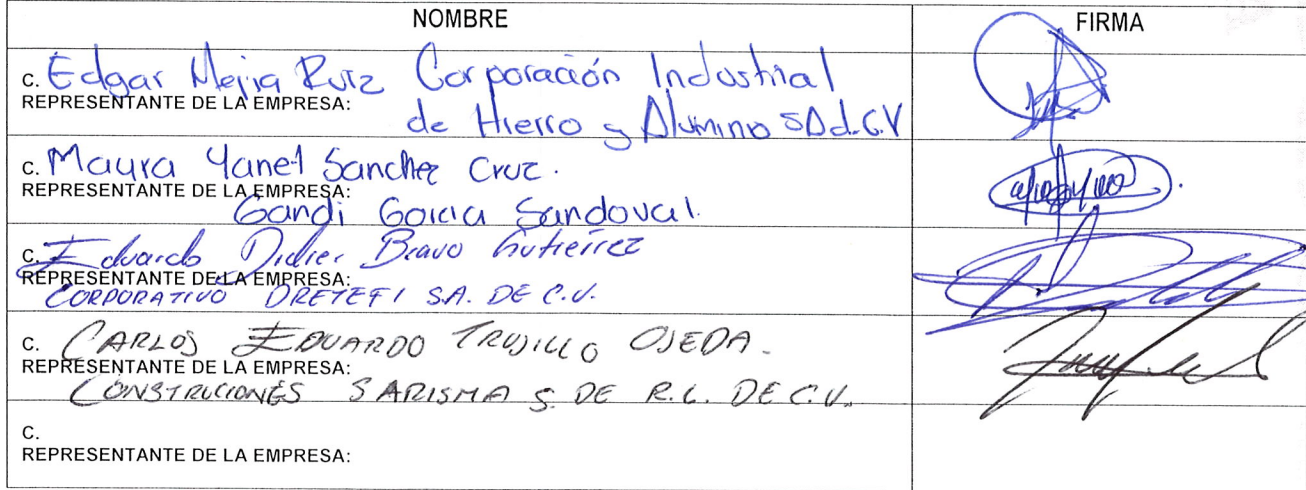 NOMBRE FIRMA
C. Edgar Mejia Ruiz Corporación Industrial
REPRESENTANTE DE LA EMPRESA:
de Hierro y Alumino SA d. C.V
C. Mayra Yanet Sanchez Cruz.
REPRESENTANTE DE LA EMPRESA:
Gandi Garcia Sandoval.
C. Eduardo Didier Bravo Gutierrez
REPRESENTANTE DE LA EMPRESA:
CORPORATIVO DRETEFI S.A. DE C.V.
C. CARLOS EDUARDO TRUJILLO OJEDA.
REPRESENTANTE DE LA EMPRESA:
CONSTRUCIONES SARISMA S. DE R.L. DE C.V.
C.
REPRESENTANTE DE LA EMPRESA: